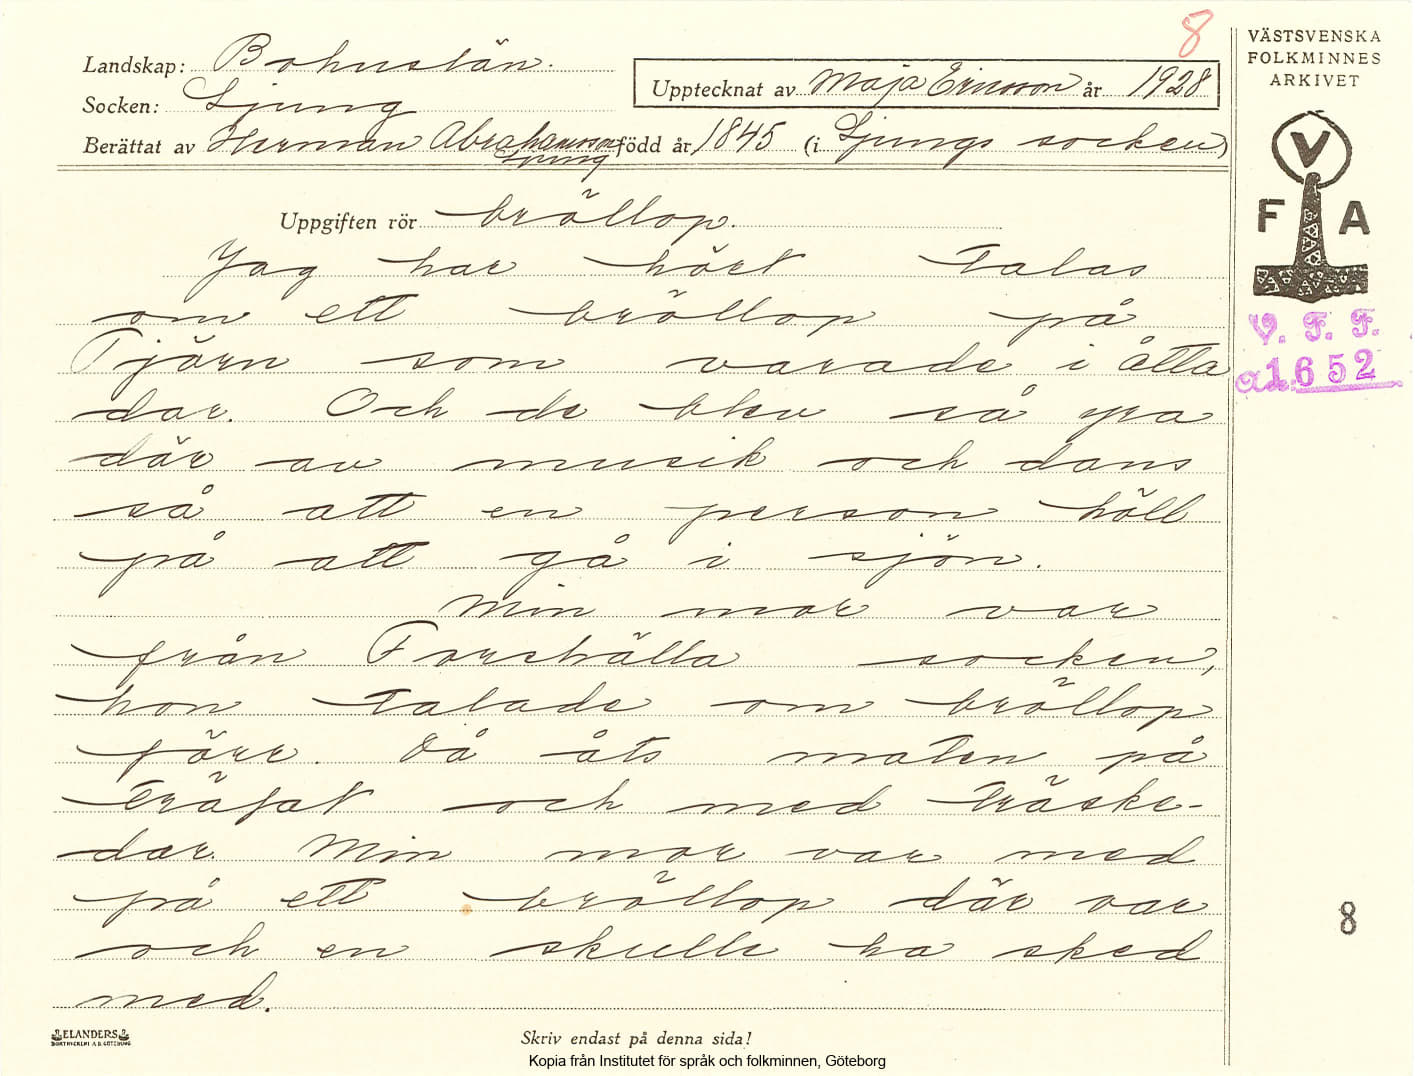 8
Landskap: Bohuslän.
Socken: Ljung
Upptecknat av Maja Ericsson år 1928
Berättat av Herman Abrahamsson född år 1845 (i Ljungs socken)
Ljung
VÄSTSVENSKA
FOLKMINNES
ARKIVET
V
F A
V. F. F.
1652
Uppgiften rör bröllop.
Jag har hört talas
om ett bröllop på
Tjörn som varade i åtta
dar. Och de blev så yra
där av musik och dans
så att en person höll
på att gå i sjön.
Min mor var
från Forshälla socken,
hon talade om bröllop
förr. Då åts maten på
träfat och med träske-
dar. Min mor var med
på ett bröllop där var
och en skulle ha sked
med.
8
ELANDERS
BOKTRYCKERI A.B. GÖTEBORG
Skriv endast på denna sida!
Kopia från Institutet för språk och folkminnen, Göteborg